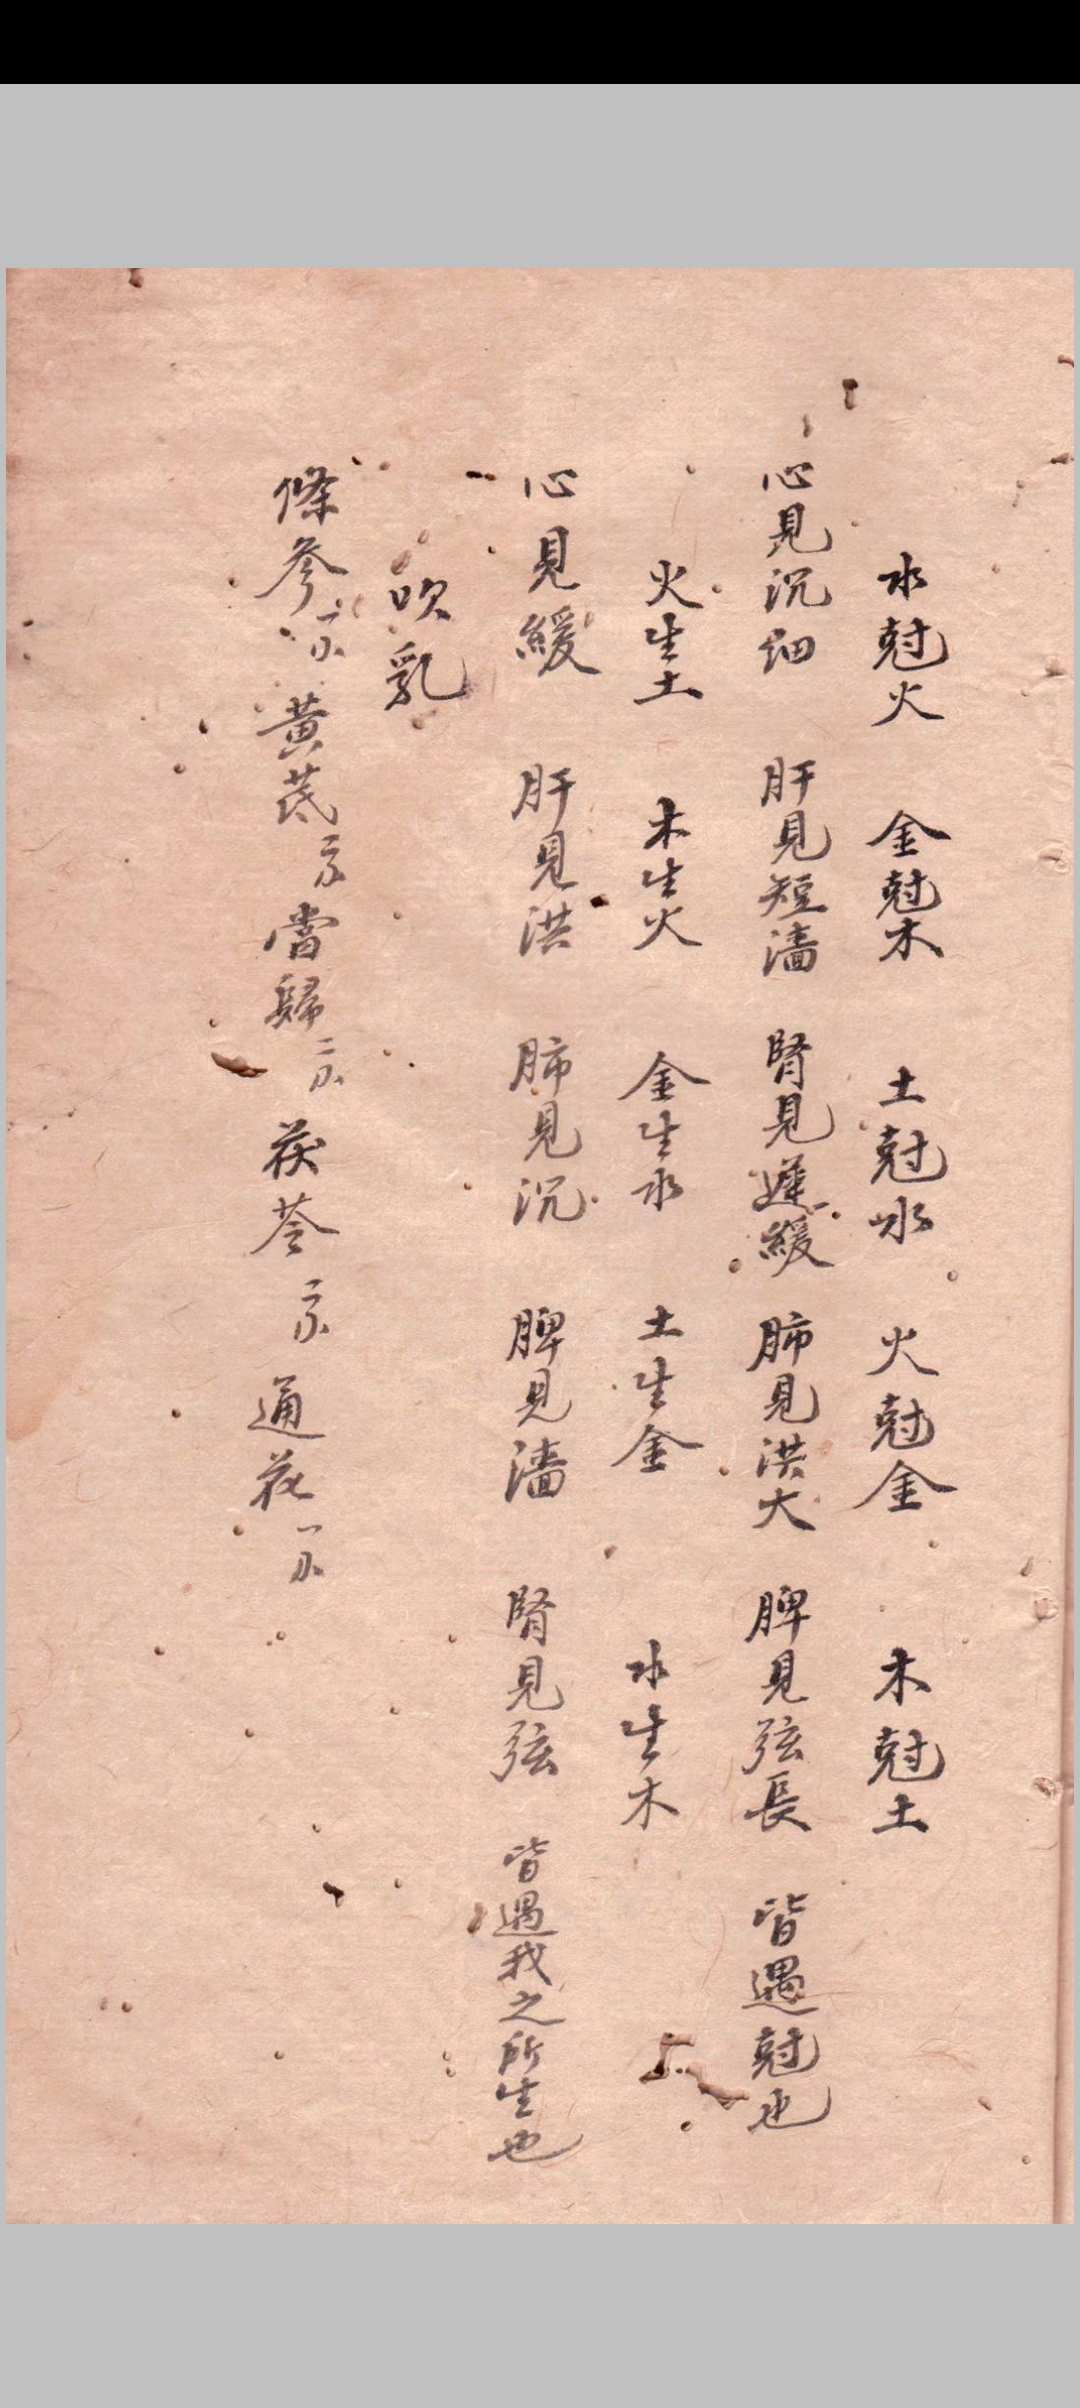 水尅火　金尅木　土尅水　火尅金　木尅土
心見沉細　肝見短濇　腎見遲緩　肺見洪大　脾見弦長　皆遇尅也
火生土　木生火　金生水　土生金　水生木
心見緩　肝見洪　肺見沉　脾見濇　腎見弦　皆遇我之所生也
吹乳
條參　黃芪　當歸　茯苓　通花